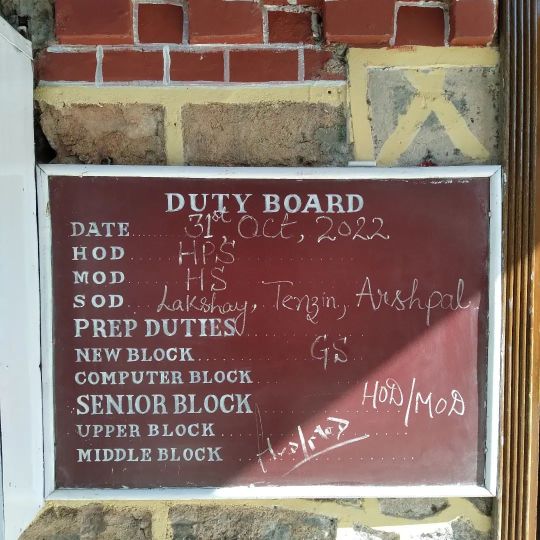 DUTY BOARD
DATE 31st Oct, 2022
HOD HPS
MOD HS
SOD Lakshay, Tenzin, Arshpal
PREP DUTIES
NEW BLOCK GS
COMPUTER BLOCK
SENIOR BLOCK HOD/MOD
UPPER BLOCK
MIDDLE BLOCK HOD/MOD